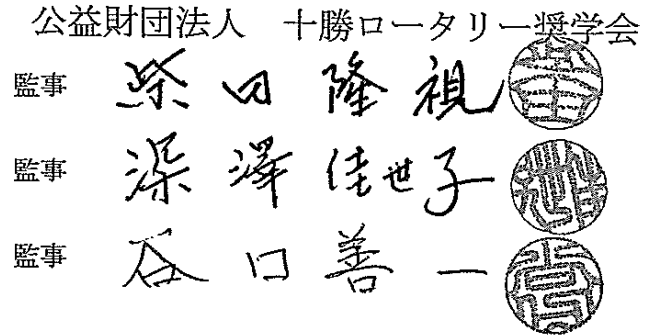 公益財団法人　十勝ロータリー奨学会
監事　柴田隆視
監事　深澤佳世子
監事　谷口善一